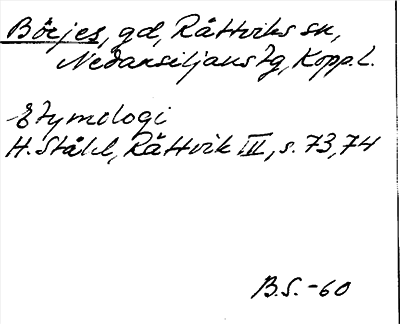 Börjes, gd, Rättviks sn,
Nedansiljans tg, Kopp. l.
Etymologi
H. Ståhl, Rättvik III, s. 73, 74
B.S. -60